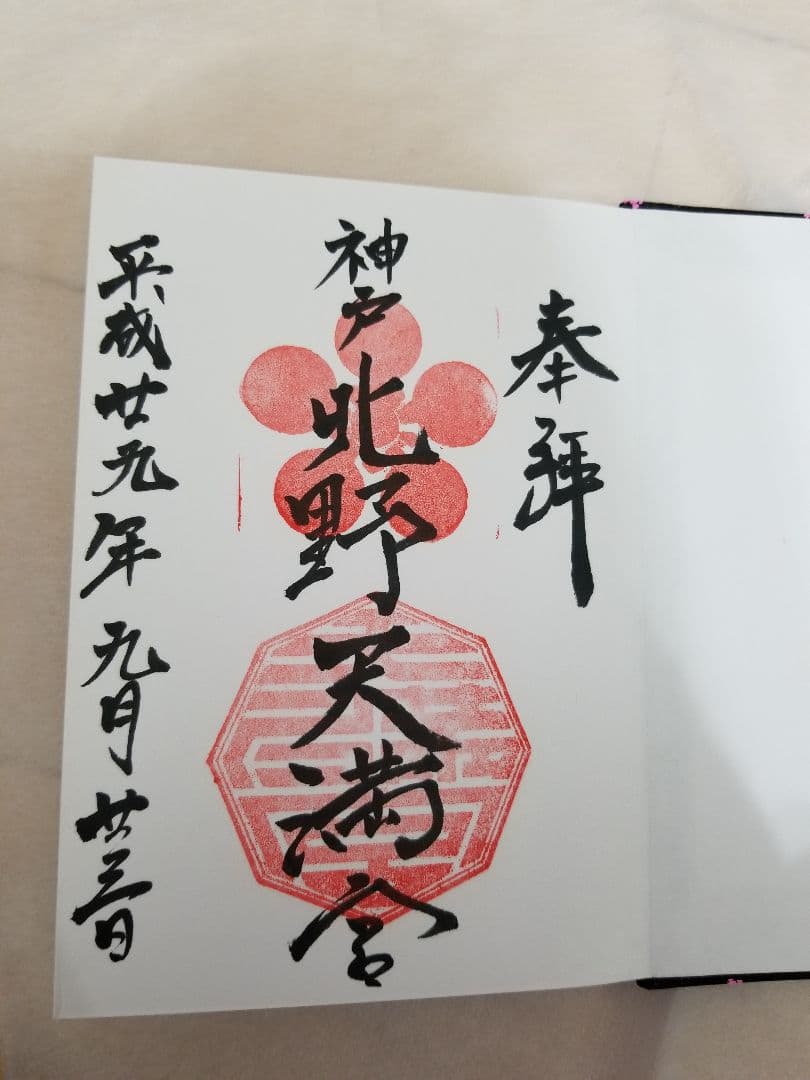 奉拝
神戸北野天満宮
平成廿九年九月廿三日